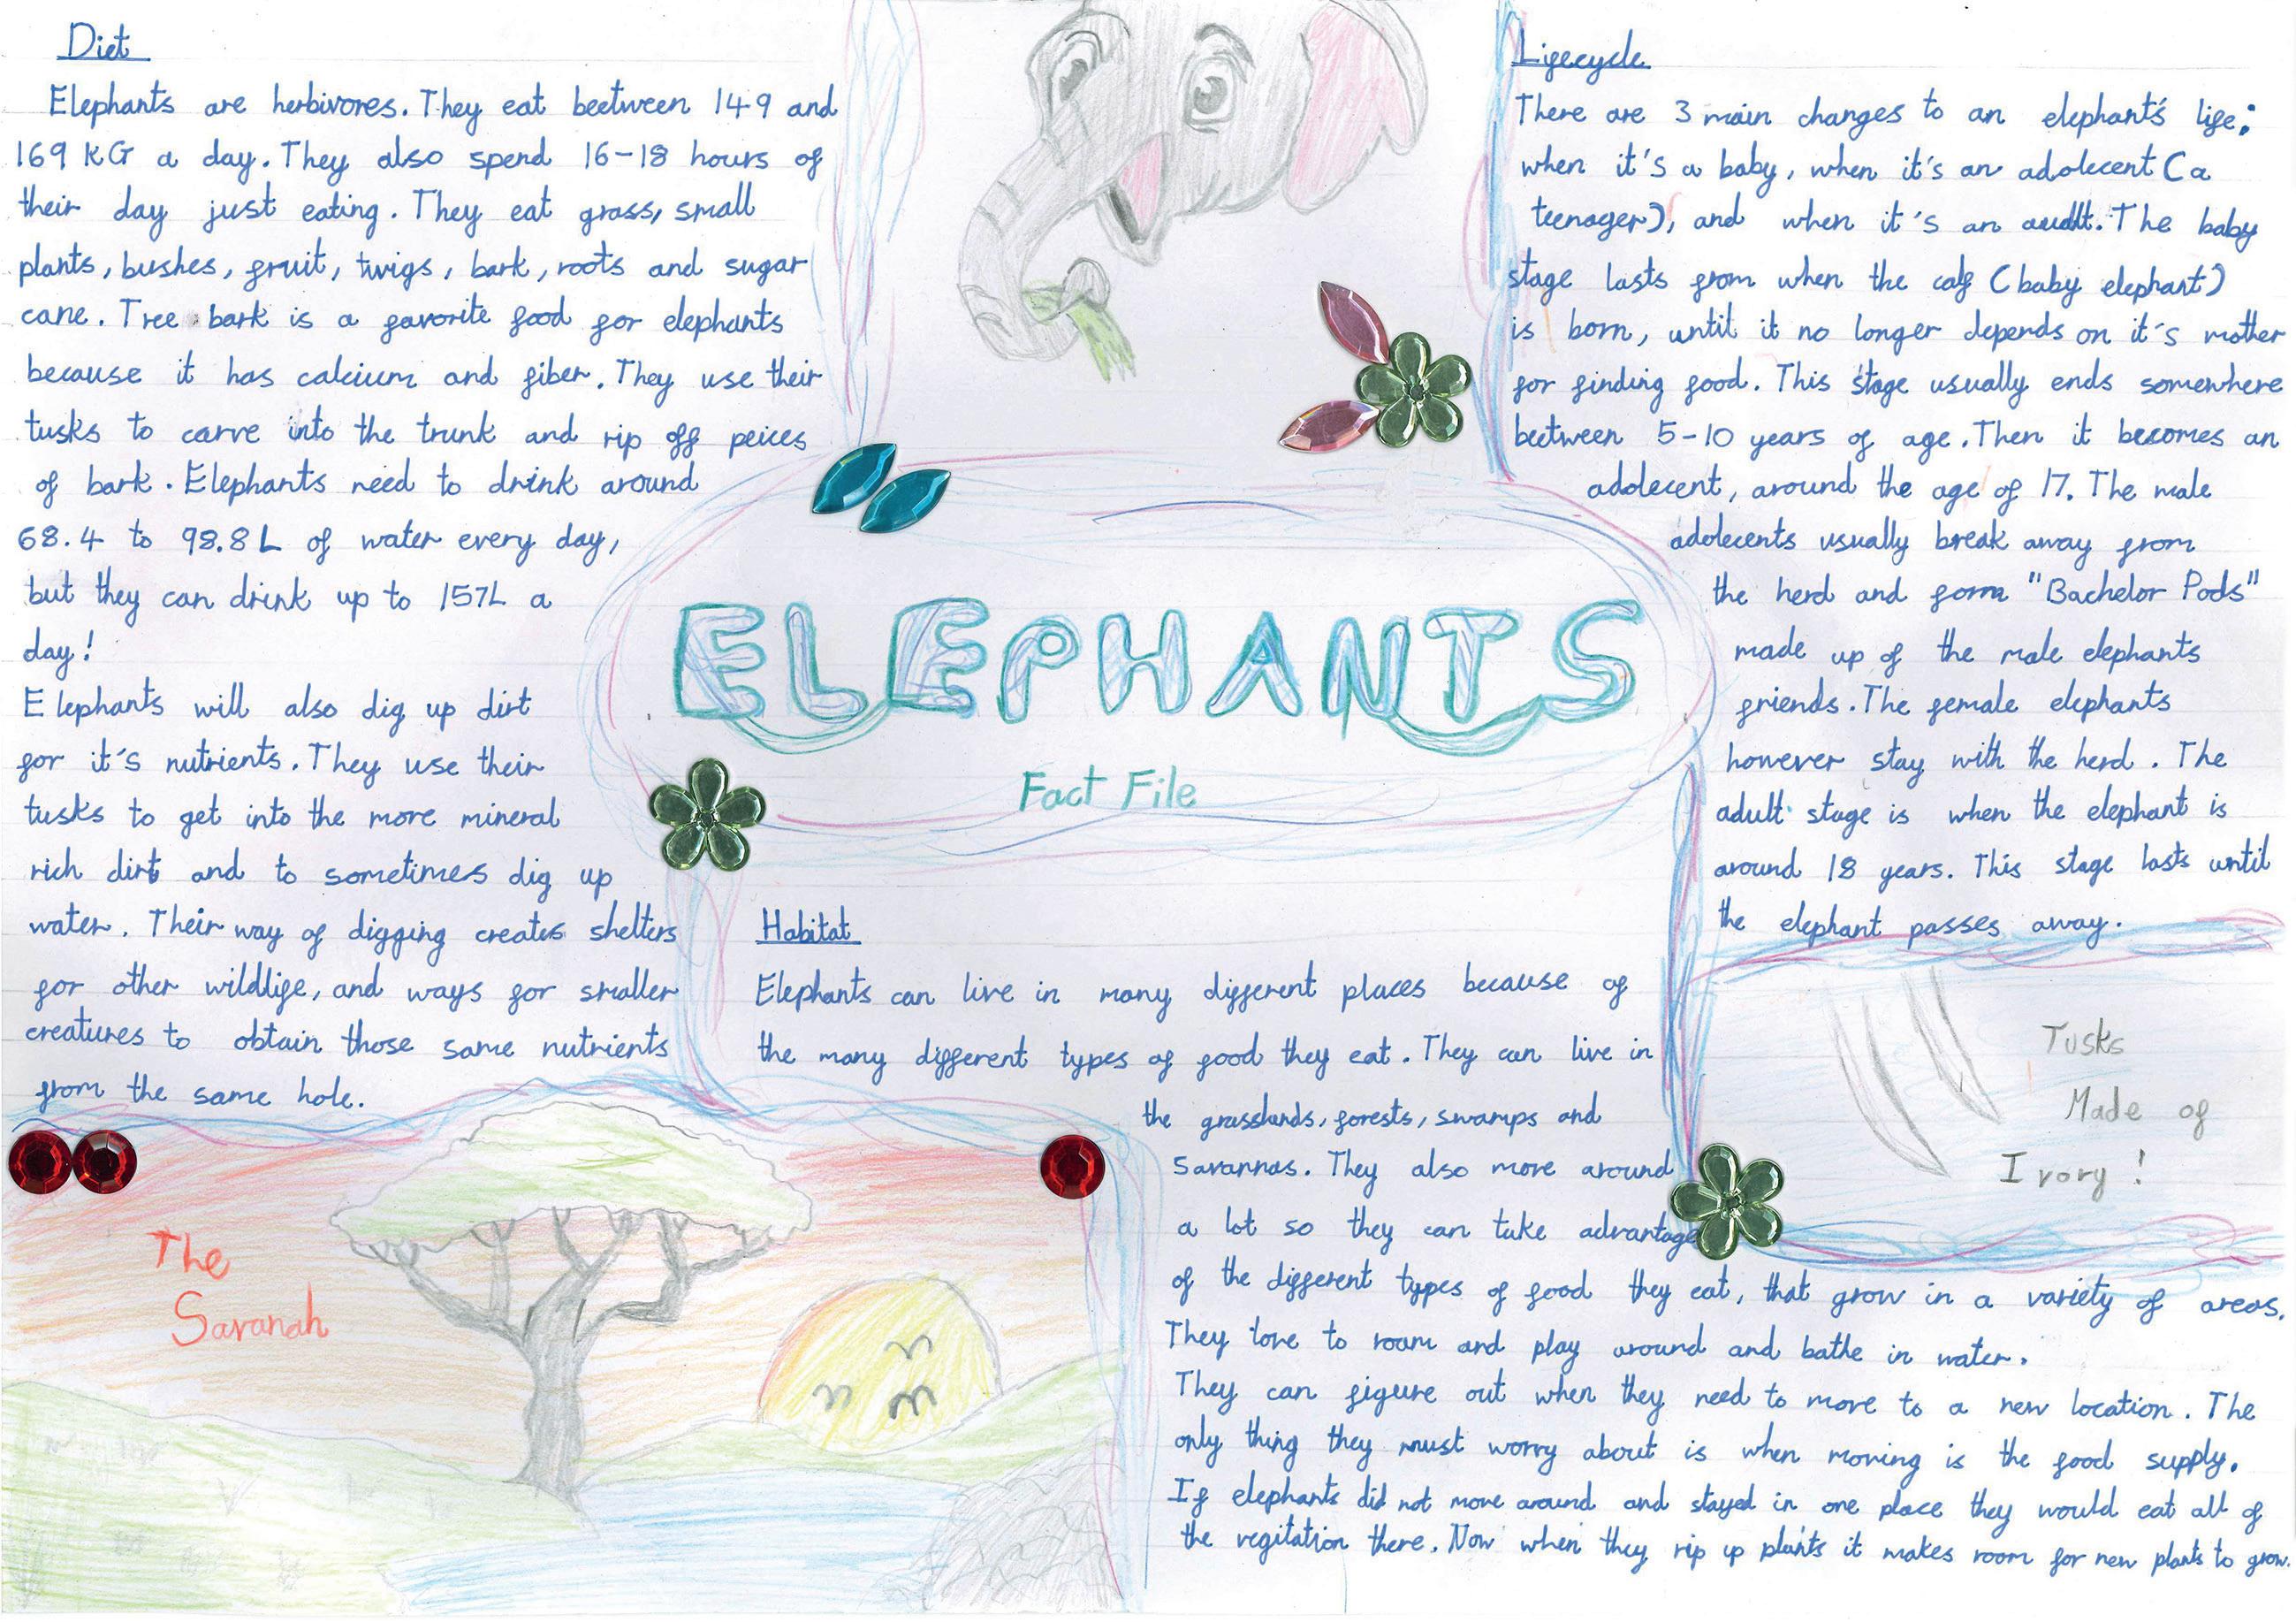 Diet
Elephants are herbivores. They eat beetween 149 and
169 KG a day. They also spend 16-18 hours of
their day just eating. They eat grass, small
plants, bushes, fruit, twigs, bark, roots and sugar
cane. Tree bark is a favorite food for elephants
because it has calcium and fiber. They use their
tusks to carve into the trunk and rip off peices
of bark. Elephants need to drink around
68.4 to 98.8L of water every day,
but they can drink up to 157L a
day!
Elephants will also dig up dirt
for it's nutrients. They use their
tusks to get into the more mineral
rich dirt and to sometimes dig up
water. Their way of digging creates shelters
for other wildlife, and ways for smaller
creatures to obtain those same nutrients
from the same hole.
The
Savanah
ELEPHANTS
Fact File
Habitat
Elephants can live in many different places because of
the many different types of food they eat. They can live in
the grasslands, forests, swamps and
savannas. They also move around
a lot so they can take advantage
of the different types of food they eat, that grow in a variety of areas.
They love to roam and play around and bathe in water.
They can figure out when they need to move to a new location. The
only thing they must worry about is when moving is the food supply.
If elephants did not move around and stayed in one place they would eat all of
the vegitation there. Now when they rip up plants it makes room for new plants to grow.
Lifecycle
There are 3 main changes to an elephant's life;
when it's a baby, when it's an adolecent (a
teenager), and when it's an audlt. The baby
stage lasts from when the calf (baby elephant)
is born, until it no longer depends on it's mother
for finding food. This stage usually ends somewhere
beetween 5-10 years of age. Then it becomes an
adolecent, around the age of 17. The male
adolecents usually break away from
the herd and form "Bachelor Pods"
made up of the male elephants
friends. The female elephants
however stay with the herd. The
adult stage is when the elephant is
around 18 years. This stage lasts until
the elephant passes away.
Tusks
Made of
Ivory!